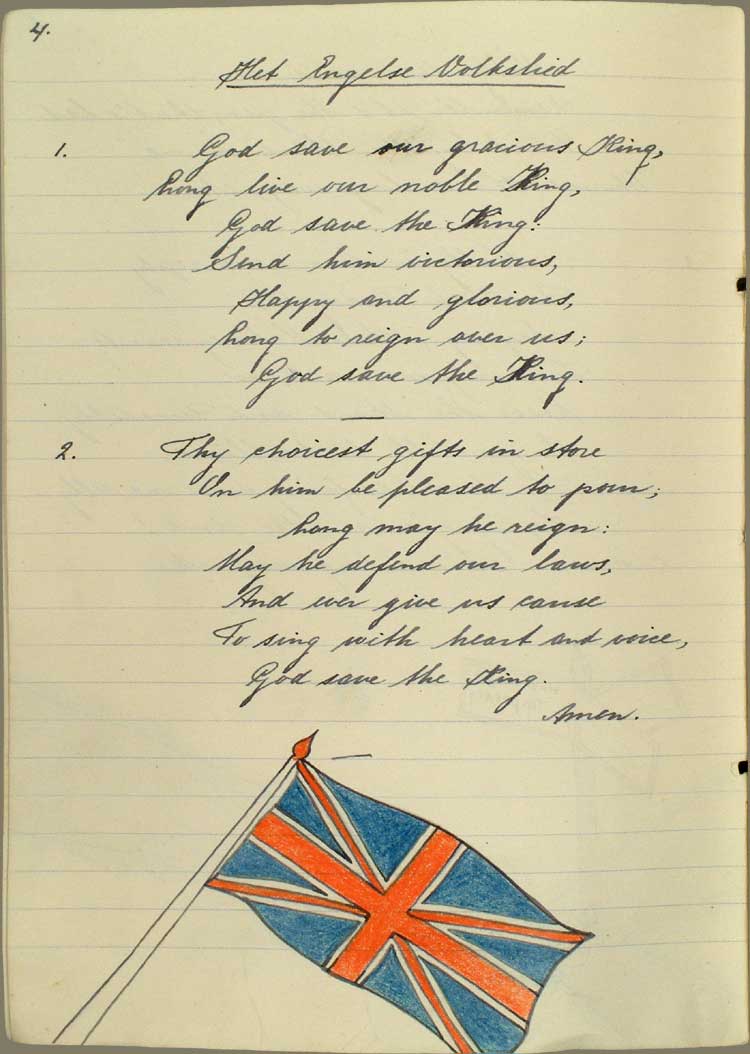 4.
Het Engelse Volkslied
1. God save our gracious King,
Long live our noble King,
God save the King:
Send him victorious,
Happy and glorious,
Long to reign over us;
God save the King.
2. Thy choicest gifts in store
On him be pleased to pour;
Long may he reign:
May he defend our laws,
And ever give us cause
To sing with heart and voice,
God save the King.
Amen.